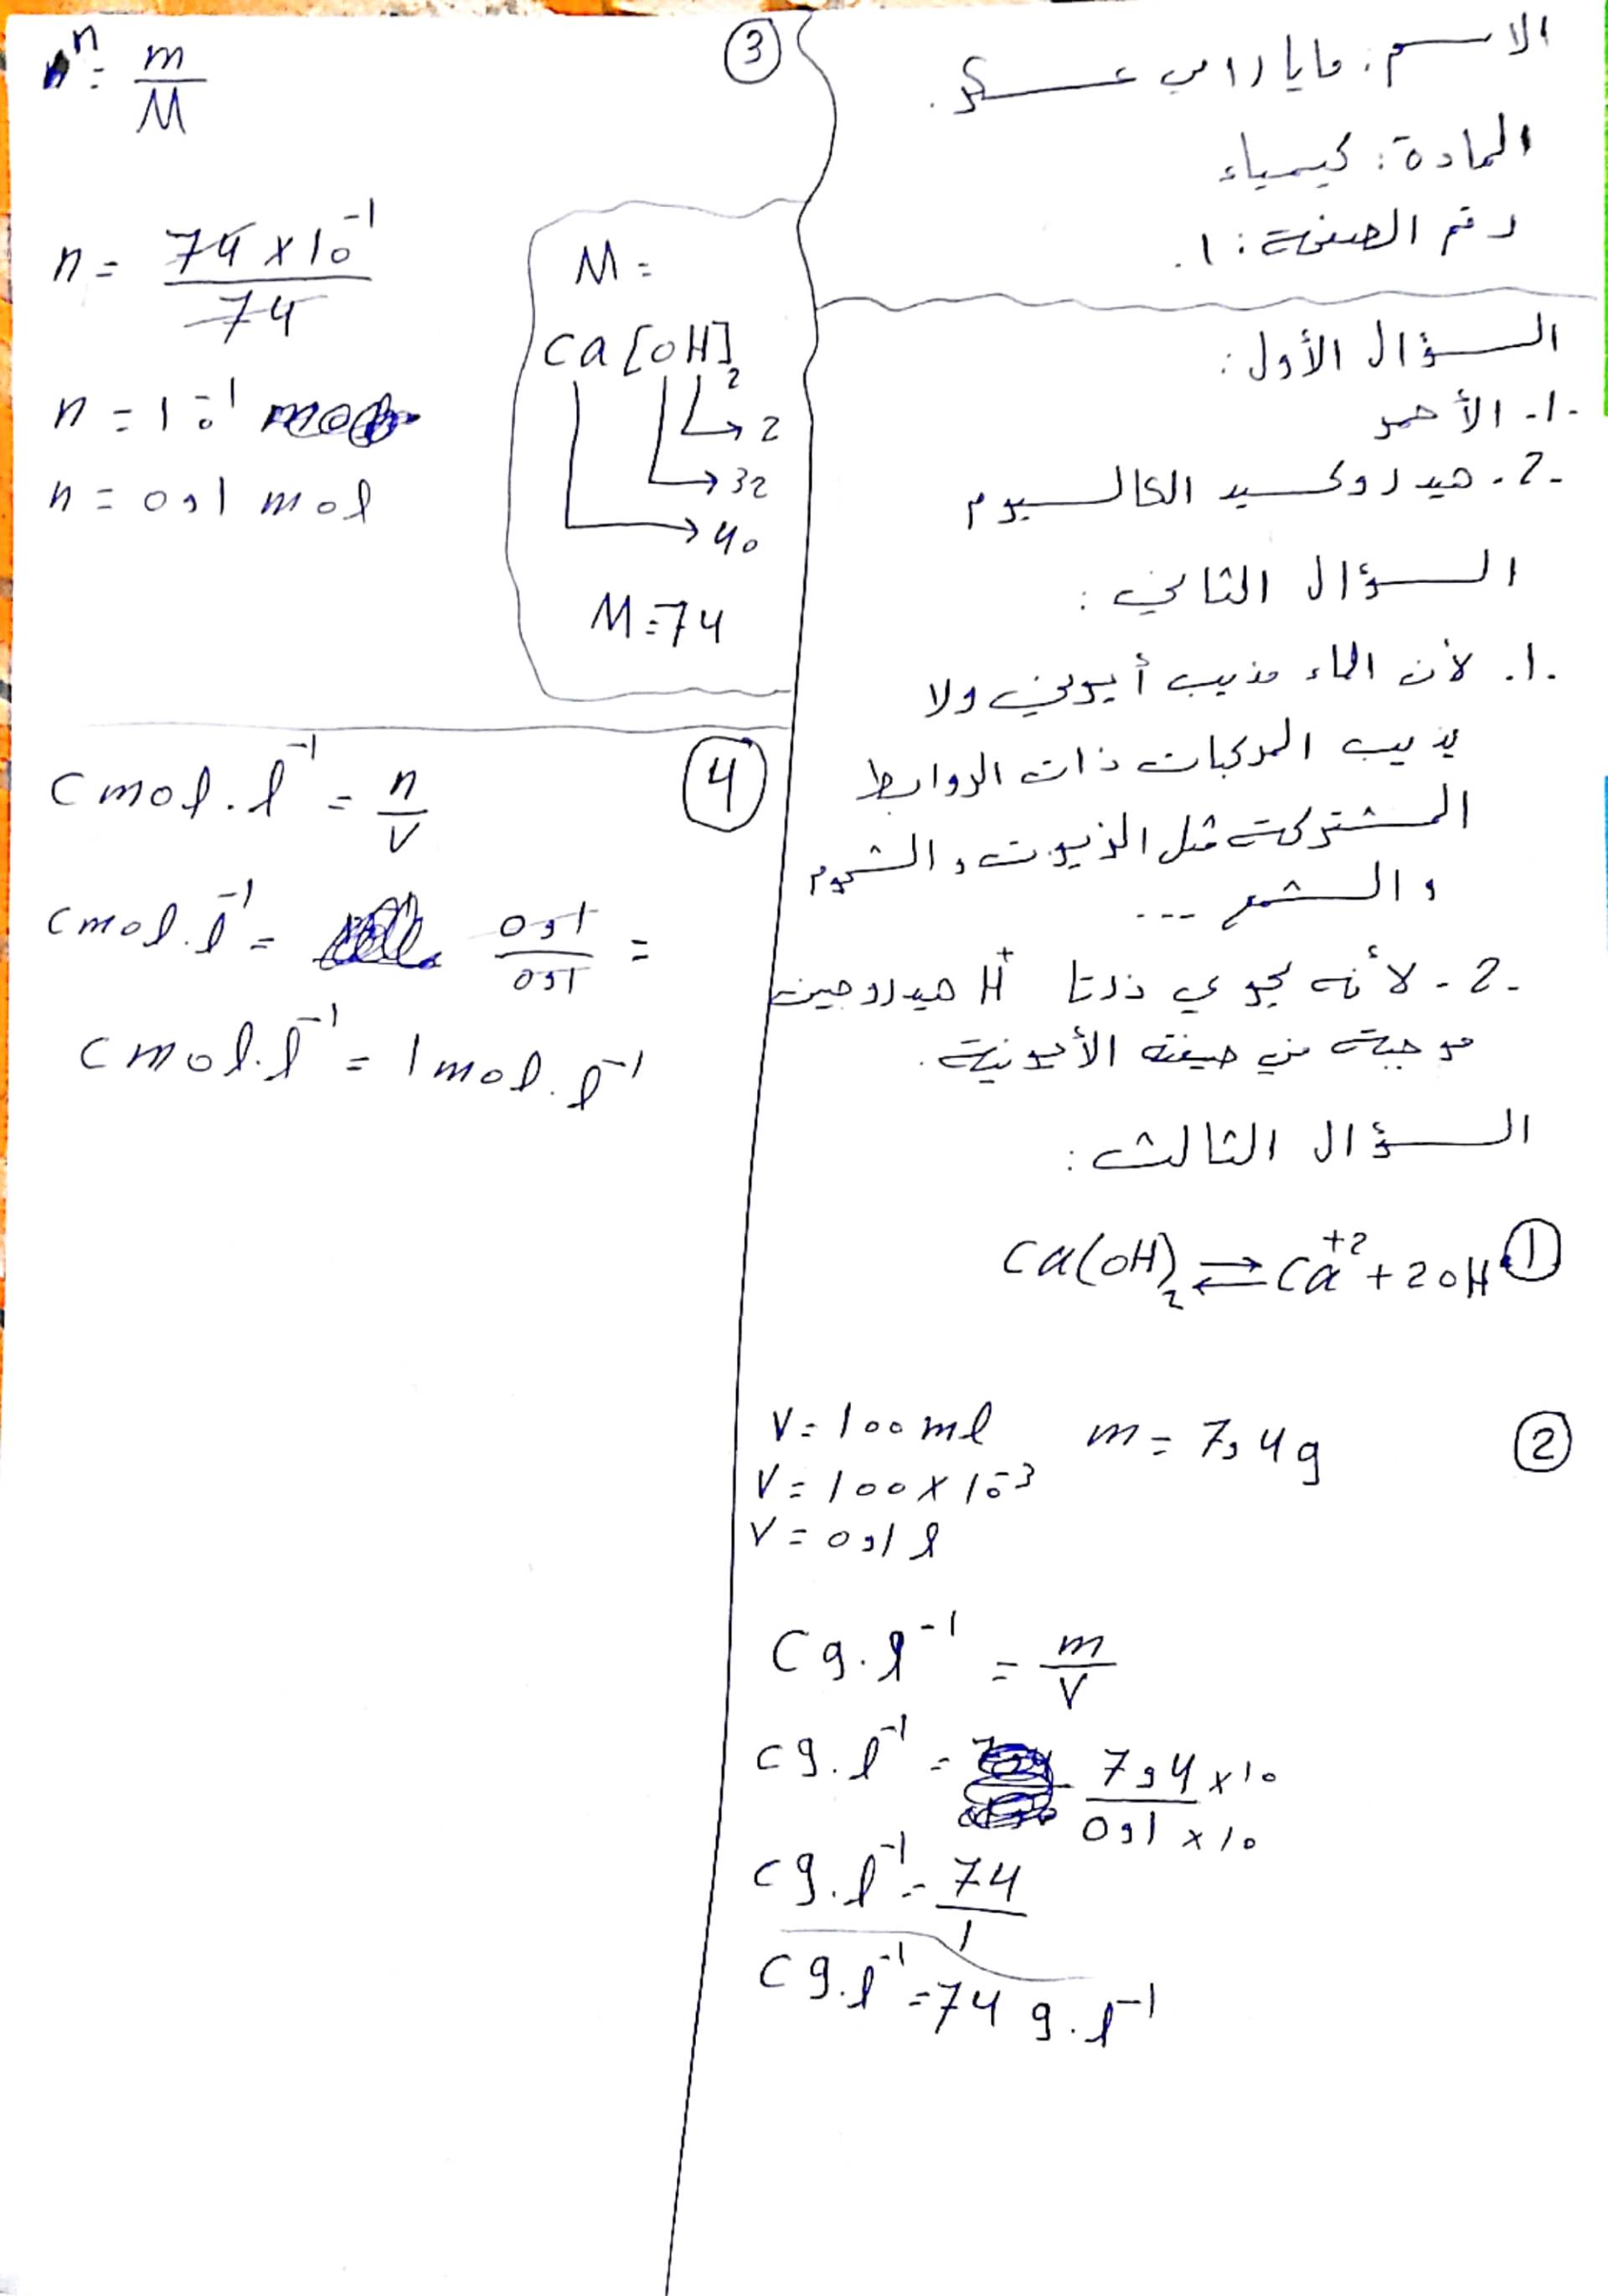 الاسم: مايا رامي عسكر.
المادة: كيمياء
رقم الصفحة: 1.
السؤال الأول:
1- الأحمر
2- هيدروكسيد الكالسيوم
السؤال الثاني:
1. لأن الماء مذيب أيوني ولا
يذيب المركبات ذات الروابط
المشتركة مثل الزيوت والشحوم
والشمع ...
2- لأنه يحوي ذرتا H⁺ هيدروجين
موجبة في صيغته الأيونية.
السؤال الثالث:
① Ca(OH)₂ ⇌ Ca⁺² + 2OH
② m = 7,4 g
V = 100 ml
V = 100 × 10⁻³
V = 0,1 l
C g.l⁻¹ = m/V
C g.l⁻¹ = 7,4 × 10 / 0,1 × 10
C g.l⁻¹ = 74/1
C g.l⁻¹ = 74 g.l⁻¹
③
n = m/M
n = 74 × 10⁻¹ / 74
n = 10⁻¹
n = 0,1 mol
M =
Ca[OH]₂
→ 2
→ 32
→ 40
M = 74
④
C mol.l⁻¹ = n/V
C mol.l⁻¹ = 0,1/0,1 =
C mol.l⁻¹ = 1 mol.l⁻¹